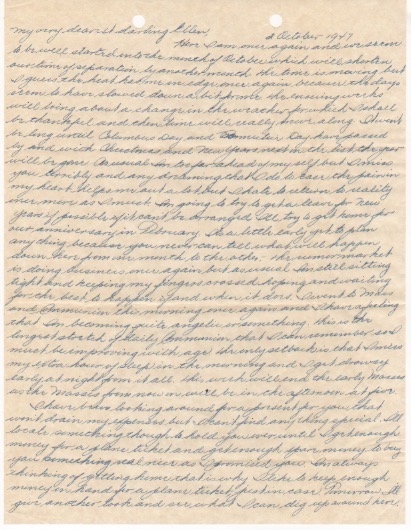 My very dearest darling Ellen,
2 October 1947
Here I am once again and we seem
to be well started into the month of October which will shorten
our time of separation by another month. The time is moving but
I guess the heat has me on edge once again because the days
seem to have slowed down a bit for me. The ensuing weeks
will bring about a change in the weather for which I shall
be thankful and then time will really hum along. It won't
be long until Columbus Day and Day have passed
by and with Christmas and New Years next on the list the year
will be gone. As usual I'm too far ahead of myself but I miss
you terribly and any dreaming that I do to ease the pain in
my heart helps me out a lot but I hate to return to reality
once more as I must. I'm going to try to get a leave for New
Years if possible if it can't be arranged I'll try to get home for
our anniversary in February. It's a little early yet to plan
anything because you never can tell what will happen
down here from one month to the other. The rumor market
is doing business once again but as usual I'm still sitting
tight and keeping my fingers crossed hoping and waiting
for the best to happen if and when it does. I went to Mass
and Communion this morning once again and I have a feeling
that I'm becoming quite angelic or something. This is the
longest stretch of daily Communion that I can remember so I
must be improving with age. The only setback is that I miss
my extra hour of sleep in the morning and I get drowsy
early at night from it all. This week will end the early Masses
as the Masses from now on will be in the afternoon at five.
I have been looking around for a present for you that
won't drain my expenses but I can't find anything special. I'll
locate something though to hold you over until I get enough
money for a plane ticket and get enough spare money to buy
you something real nice as I promised you. I'm always
thinking of getting home that is why I like to keep enough
money in hand for a plane ticket just in case. Tomorrow I'll
give another look and see what I can dig up around here.